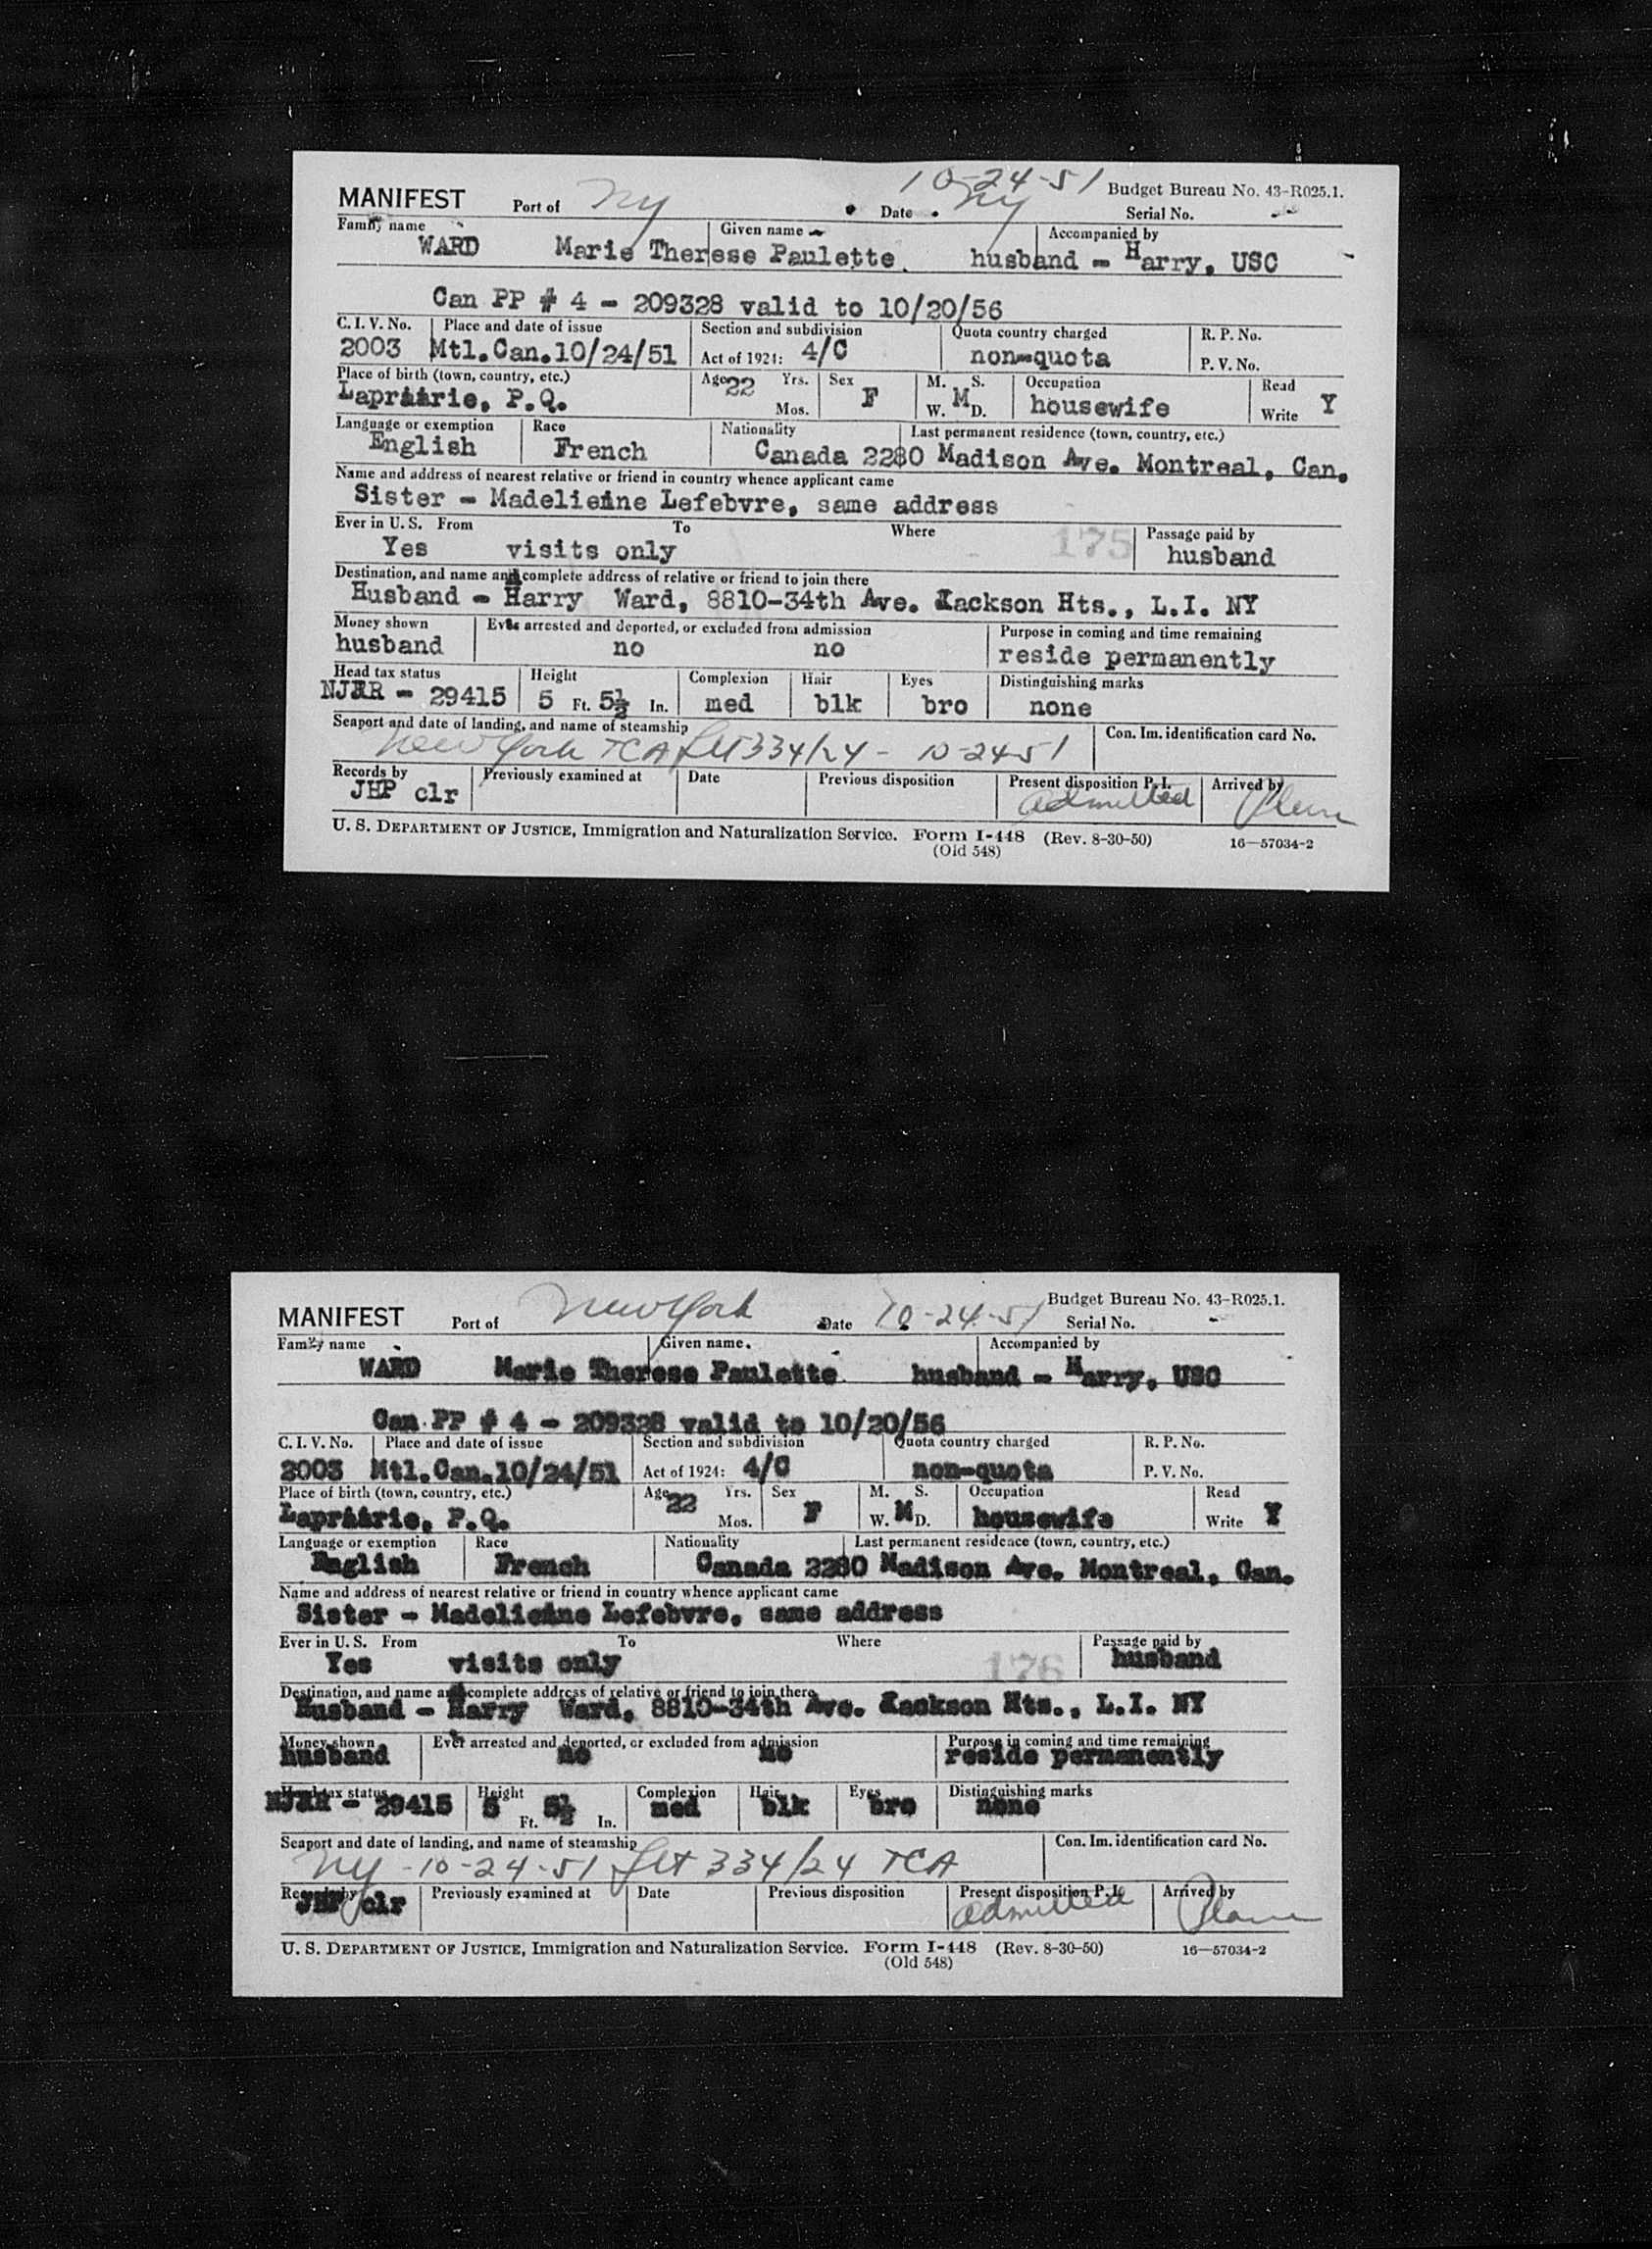 10-24-51
MANIFEST Port of NY Date NY Budget Bureau No. 43-R025.1.
Serial No.
Family name Given name Accompanied by
WARD Marie Therese Paulette husband - Harry, USC
Can PP # 4 - 209328 valid to 10/20/56
C. I. V. No. Place and date of issue Section and subdivision Quota country charged R. P. No.
2003 Mtl.Can.10/24/51 Act of 1924: 4/C non-quota P. V. No.
Place of birth (town, country, etc.) Age 22 Yrs. Sex M. S. Occupation Read
Laprairie, P.Q. Mos. F W. M D. housewife Write Y
Language or exemption Race Nationality Last permanent residence (town, country, etc.)
English French Canada 2280 Madison Ave. Montreal, Can.
Name and address of nearest relative or friend in country whence applicant came
Sister - Madelieine Lefebvre, same address
Ever in U. S. From To Where 175 Passage paid by
Yes visits only husband
Destination, and name and complete address of relative or friend to join there
Husband - Harry Ward, 8810-34th Ave. Jackson Hts., L.I. NY
Money shown Ever arrested and deported, or excluded from admission Purpose in coming and time remaining
husband no no reside permanently
Head tax status Height Complexion Hair Eyes Distinguishing marks
NJRR - 29415 5 Ft. 5½ In. med blk bro none
Seaport and date of landing, and name of steamship Con. Im. identification card No.
New York TCA flt 334/24 - 10-24-51
Records by Previously examined at Date Previous disposition Present disposition P. I. Arrived by
JHP clr admitted Plane
U. S. DEPARTMENT OF JUSTICE, Immigration and Naturalization Service. Form I-448 (Rev. 8-30-50) 16—57034-2
(Old 548)
MANIFEST Port of New York Date 10-24-51 Budget Bureau No. 43-R025.1.
Serial No.
Family name Given name Accompanied by
WARD Marie Therese Paulette husband - Harry, USC
Can PP # 4 - 209328 valid to 10/20/56
C. I. V. No. Place and date of issue Section and subdivision Quota country charged R. P. No.
2003 Mtl.Can.10/24/51 Act of 1924: 4/C non-quota P. V. No.
Place of birth (town, country, etc.) Age 22 Yrs. Sex M. S. Occupation Read
Laprairie, P.Q. Mos. F W. M D. housewife Write Y
Language or exemption Race Nationality Last permanent residence (town, country, etc.)
English French Canada 2280 Madison Ave. Montreal, Can.
Name and address of nearest relative or friend in country whence applicant came
Sister - Madelieine Lefebvre, same address
Ever in U. S. From To Where 176 Passage paid by
Yes visits only husband
Destination, and name and complete address of relative or friend to join there
Husband - Harry Ward, 8810-34th Ave. Jackson Hts., L.I. NY
Money shown Ever arrested and deported, or excluded from admission Purpose in coming and time remaining
husband no no reside permanently
Head tax status Height Complexion Hair Eyes Distinguishing marks
NJRR - 29415 5 Ft. 5½ In. med blk bro none
Seaport and date of landing, and name of steamship Con. Im. identification card No.
NY - 10-24-51 flt 334/24 TCA
Records by Previously examined at Date Previous disposition Present disposition P. I. Arrived by
JHP clr admitted Plane
U. S. DEPARTMENT OF JUSTICE, Immigration and Naturalization Service. Form I-448 (Rev. 8-30-50) 16—57034-2
(Old 548)